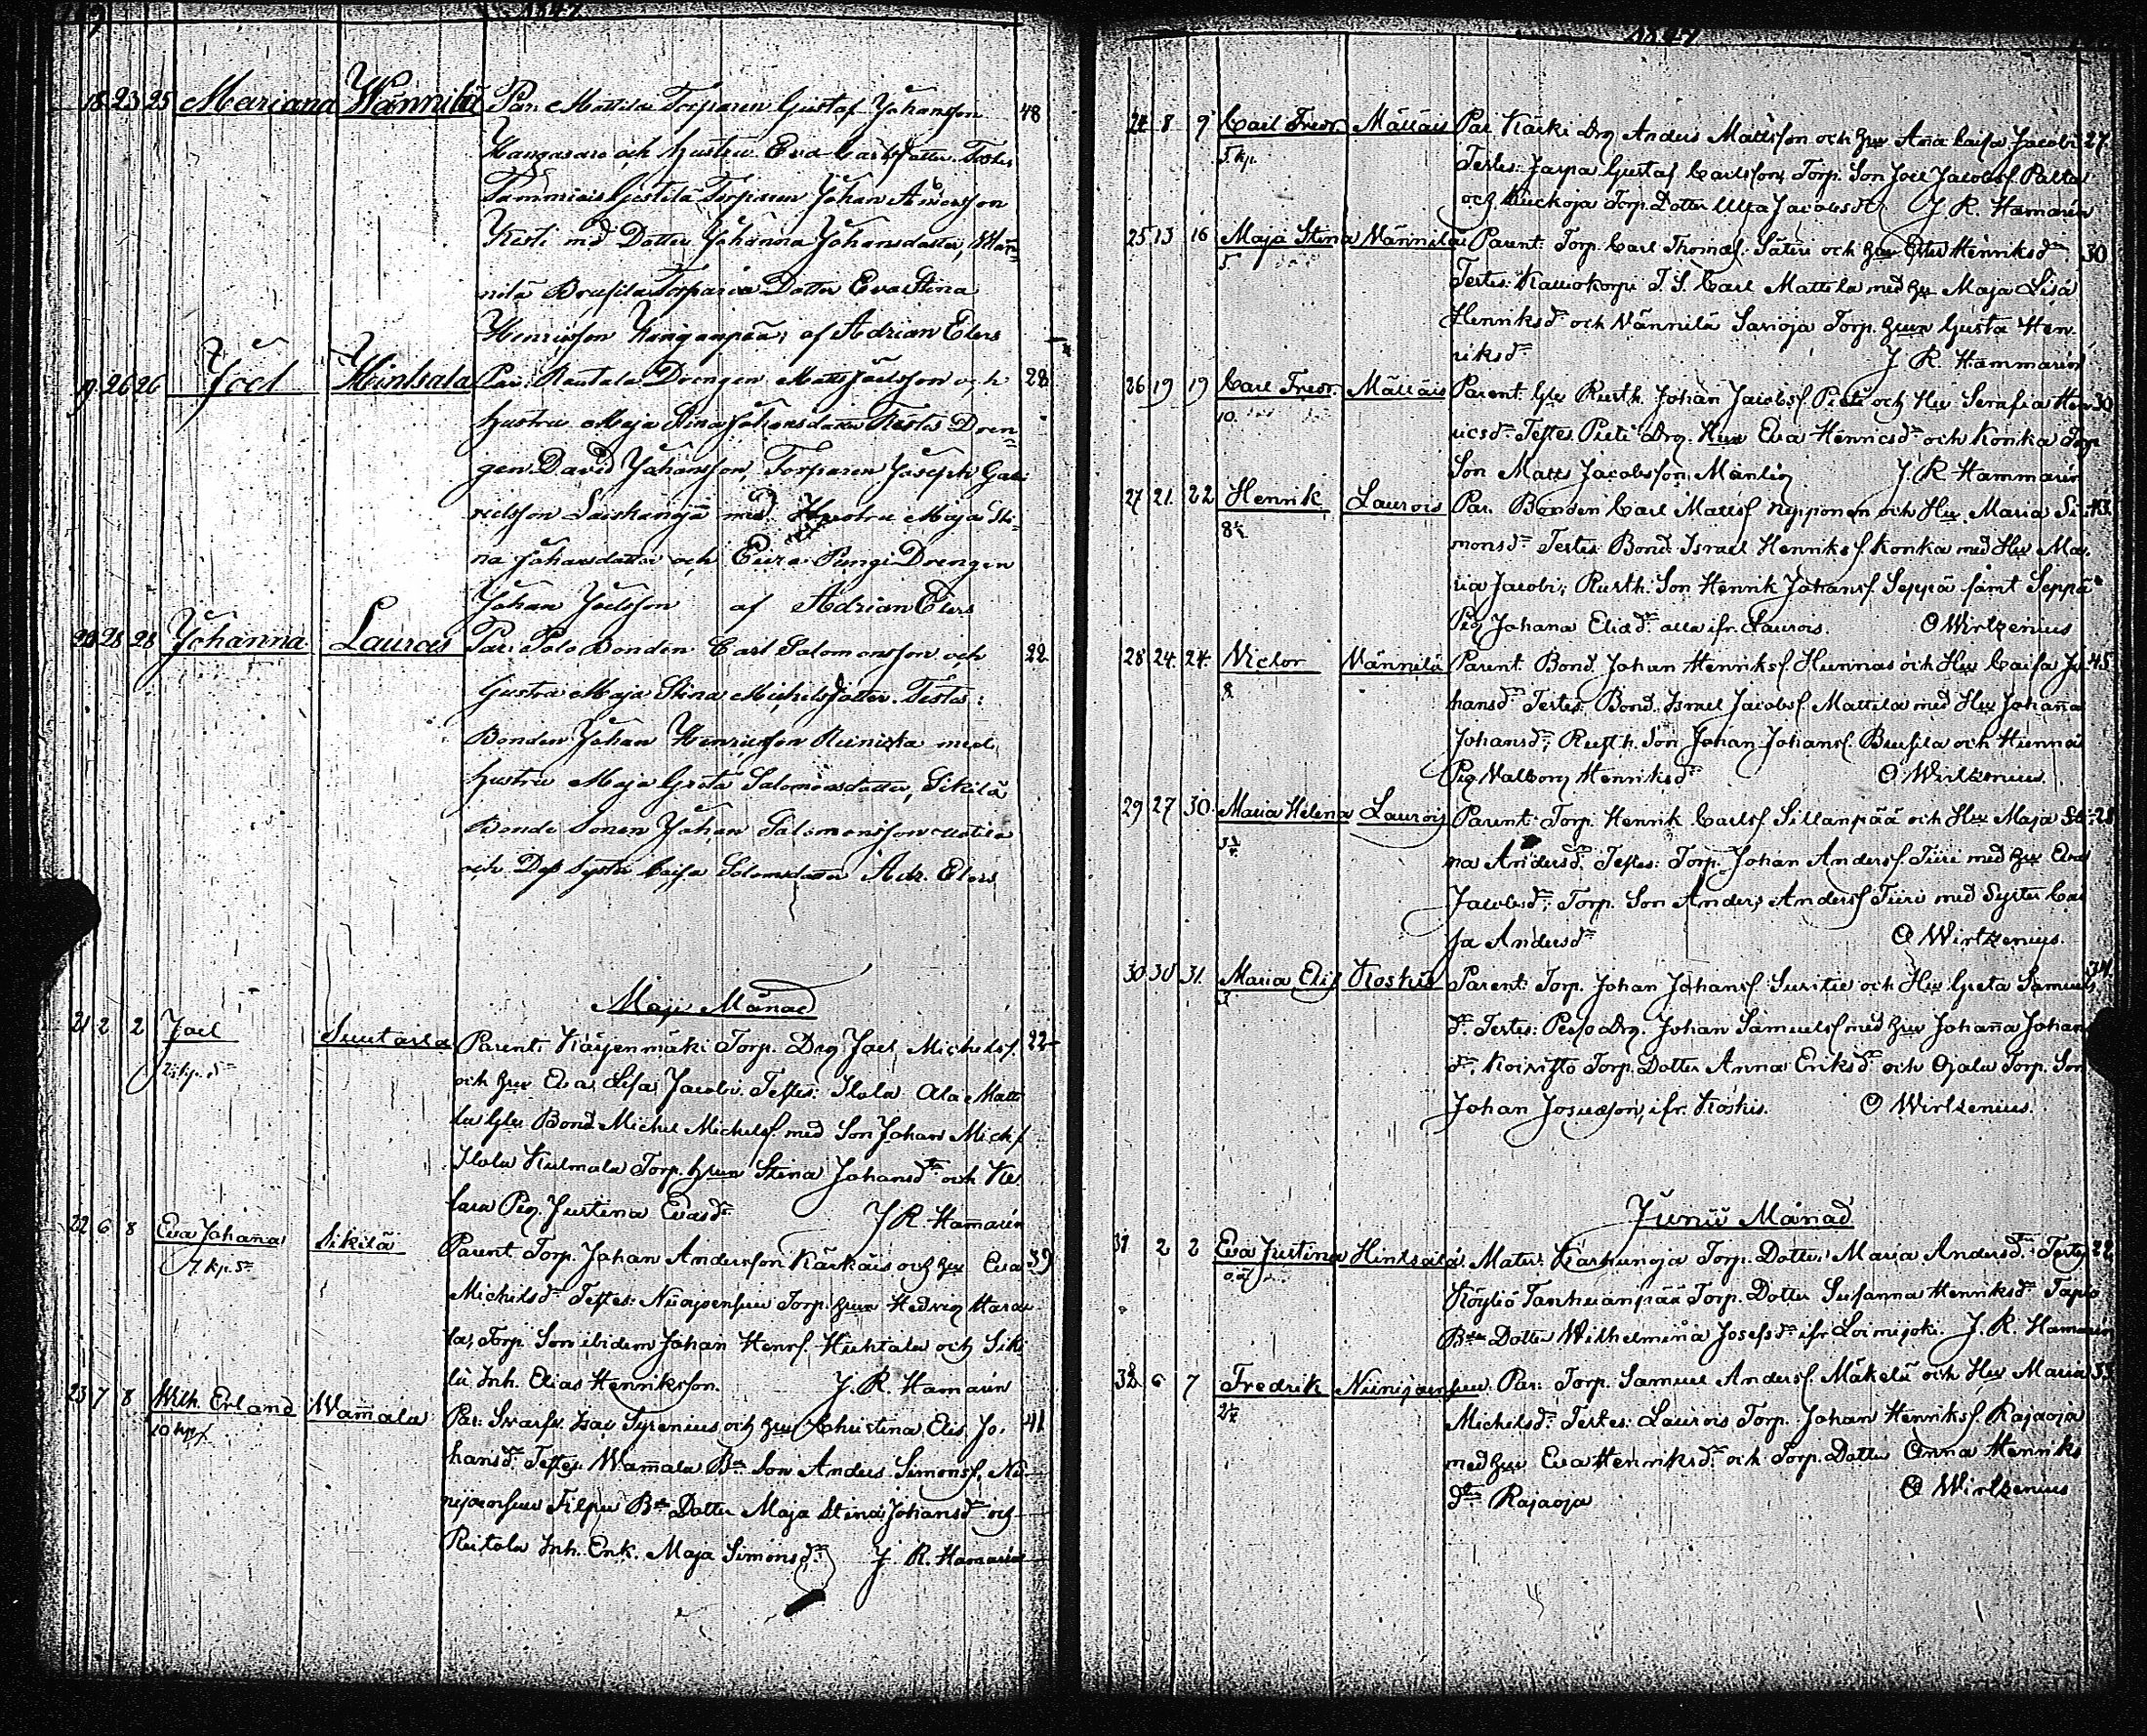 1847
18 23 25 Mariana Wännilä Par: Mattila Torparen Gustaf Johansson 48
Kangasaro och hustru Eva Carlsdotter Testes
Torparen Johan Andersson
Kesti md Dotter Johanna Johansdotter, Wän-
nilä Brusila Torpare Dotter Eva Stina
af Adrian Elers
19 26 26 Joel Hintsala Par: Rautala Drengen Matts Joelsson och 28
hustru Maja Stina Johansdotter Testes Dren
gen David Johansson, Torparen Joseph Gab
rielsson med Hustru Maja Sti
na Johansdotter och Eura Pungi Drengen
Johan Joelsson af Adrian Elers
20 28 28 Johanna Laurois Par: Polo Bonden Carl Salomonsson och 22
hustru Maja Stina Michelsdotter. Testes:
Bonden Johan Henricsson med
hustru Maja Greta Salomonsdotter, Sikilä
Bonde Sonen Johan Salomonsson
och Dess Syster Caisa Salomsdotter Adr. Elers
Maji Månad
21 2 2 Joel Suutarla Parent: Käyenmäki Torp. Drg Joel Michelsf. 22
och hu Eva Lisa Jacobi. Testes: Ilola Ala Matti
la Bond Michel Michelsf. med Son Johan Mich/
Ilola Kulmala Torp. hun Stina Johansdr och
Pig. Justina Evasdr J R. Hamarén
22 6 8 Eva Johana Sikilä Parent. Torp. Johan Andersson Kärkäis och hu Eva 39
7. kp. Sn
Michelsdr Testes: Niinijoensuu Torp. hun Hedvig
Torp. Son ibidem Johan Henrs. Huhtala och Siki
lä Inh. Elias Henriksson. J. R. Hamarén
23 7 8 Wilh. Erland Wammala Par: Svarfv. Isac Syrenius och hu Christina Elis. Jo. 41
10 kp
hansdr. Testes: Wammala Bde Son Anders Simonsf. Ni-
nijoensuu Filpu Bde Dotter Maja Stina Johansdr och
Reitola Inh. Enk. Maja Simonsdr J R. Hamarén
1847
24 8 9 Carl Fredr. Mälläis Par Käcki Drg Anders Mattsson och hu Ana Caisa Jacobi 27.
5. kp.
Testes: Jaspa Gustaf Carlsson, Torp. Son Joel Jacobsf. Palta
och Torp. Dotter Ulla Jacobsdr J R. Hamarén
25 13 16 Maja Stina Wännilä Parent: Torp. Carl Thomasf. Säteri och hu Ester Henriksdr 30
5.
Testes: Kalliokorpi T. S. Carl Mattila med hu Maja Lisa
Henriksdr och Vännilä Sarioja Torp. hun Gusta Hen-
riksdr J R. Hammarén
26 19 19 Carl Fredr. Mälläis Parent: Rusth. Johan Jacobsf Pieti och Hu Serafia Hen 30
10.
ricsdr. Testes Pieti Drg. Hun Eva Henricsdr och Konka Torp
Son Matts Jacobsson, J. R Hammarén
27 21. 22 Henrik Laurois Par. Bonden Carl Mattsf. Nypponen och Hu. Maria Si 43.
monsdr Testes: Bond. Israel Henriksf. Konka med Hu Ma-
ria Jacobi; Rusth. Son Henrik Johansf. Seppä samt Seppä
Pig Johana Eliædr. alla ifr. Laurois. O Wirtzenius
28 24. 24. Victor Vännilä Parent: Bond. Johan Henriksf. Hunnas och Hu Caisa Jo 45
8.
hansdr Testes: Bond. Israel Jacobsf Mattila med Hu Johana
Johansdr; Rusth. Son Johan Johansf. Brusila och Hunna
Pig Valborg Henriksdr O Wirtzenius.
29 27 30. Maria Helena Laurois Parent: Torp. Henrik Carlsf. Sillanpää och Hu Maja Sti 28
na Andersdr. Testes: Torp. Johan Andersf. Tiiri med hu Eva
Jacobsdr, Torp. Son Anders Andersf Tiiri med Syster Cai
sa Andersdr O Wirtzenius.
30 30 31. Maria Elis Koskis Parent: Torp. Johan Johansf. och Hu Greta Samuels 34.
5.
dr. Testes: Drg. Johan Samuelsf med hu Johana Johans
dr, Koivisto Torp. Dotter Anna Eriksdr och Ojala Torp. Son
Johan Josuæson, ifr. Koskis. O Wirtzenius.
Junii Månad
31 2 2 Eva Justina Hintsala Mater: Karhunoja Torp. Dotter Maria Andersdr. Testes 22
o.ä.
Köyliö Tanhuanpää Torp. Dotter Susanna Henriksdr Tapio
Bde Dotter Wilhelmina Josefsdr ifr Loimijoki. J. R. Hamarén
32 6 7 Fredrik Niinijoensuu Par: Torp. Samuel Andersf. Mäkelä och Hu Maria 33
Michelsdr. Testes: Laurois Torp. Johan Henriksf. Rajaoja
med hu Eva Henriksdr. och Torp. Dotter Anna Henriks
dr Rajaoja O Wirtzenius